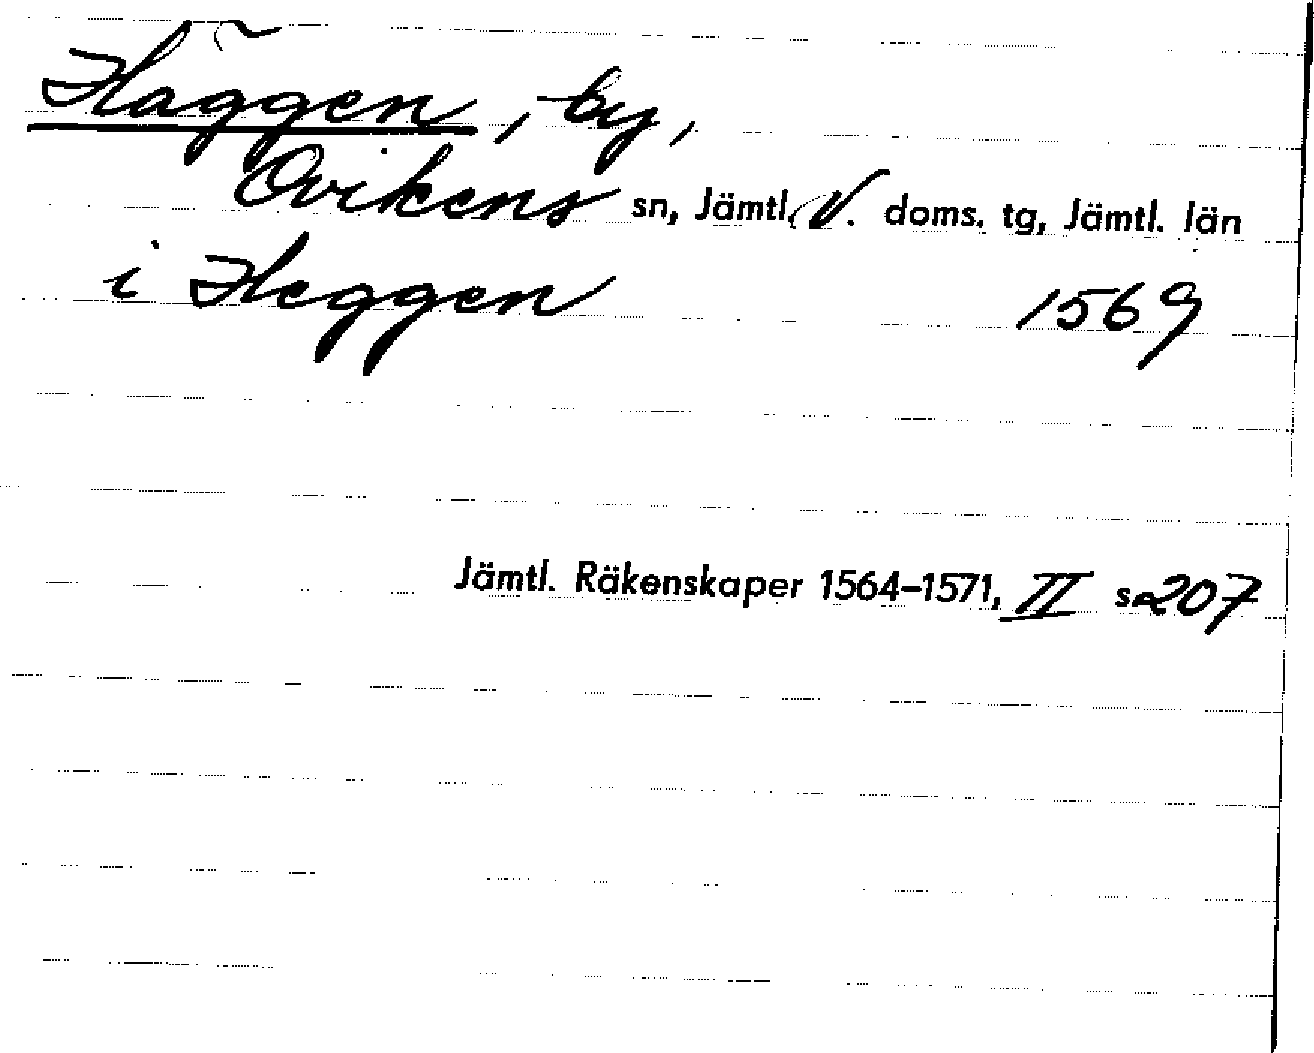 Häggen, by,
Ovikens sn, Jämtl. V. doms. tg, Jämtl. län
i Heggen 1569
Jämtl. Räkenskaper 1564–1571, II s. 207